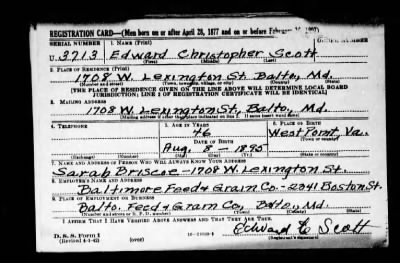 REGISTRATION CARD—(Men born on or after April 28, 1877 and on or before February 16, 1897)
SERIAL NUMBER 1. NAME (Print) ORDER NUMBER
U. 3713 Edward Christopher Scott
(First) (Middle) (Last)
2. PLACE OF RESIDENCE (Print)
1708 W. Lexington St. Balto, Md.
(Number and street) (Town, township, village, or city) (County) (State)
[THE PLACE OF RESIDENCE GIVEN ON THE LINE ABOVE WILL DETERMINE LOCAL BOARD
JURISDICTION; LINE 2 OF REGISTRATION CERTIFICATE WILL BE IDENTICAL]
3. MAILING ADDRESS
1708 W. Lexington St, Balto, Md.
[Mailing address if other than place indicated on line 2. If same insert word same]
4. TELEPHONE 5. AGE IN YEARS 6. PLACE OF BIRTH
46 West Point, Va.
DATE OF BIRTH (Town or county)
Aug. 8 - 1895
(Exchange) (Number) (Mo.) (Day) (Yr.) (State or country)
7. NAME AND ADDRESS OF PERSON WHO WILL ALWAYS KNOW YOUR ADDRESS
Sarah Briscoe - 1708 W. Lexington St.
8. EMPLOYER'S NAME AND ADDRESS
Baltimore Feed & Grain Co - 2041 Boston St.
9. PLACE OF EMPLOYMENT OR BUSINESS
Balto. Feed & Grain Co, Balto, Md.
(Number and street or R. F. D. number) (Town) (County) (State)
I AFFIRM THAT I HAVE VERIFIED ABOVE ANSWERS AND THAT THEY ARE TRUE.
Edward C Scott
D. S. S. Form 1
(Revised 4-1-42) (over) (Registrant's signature)